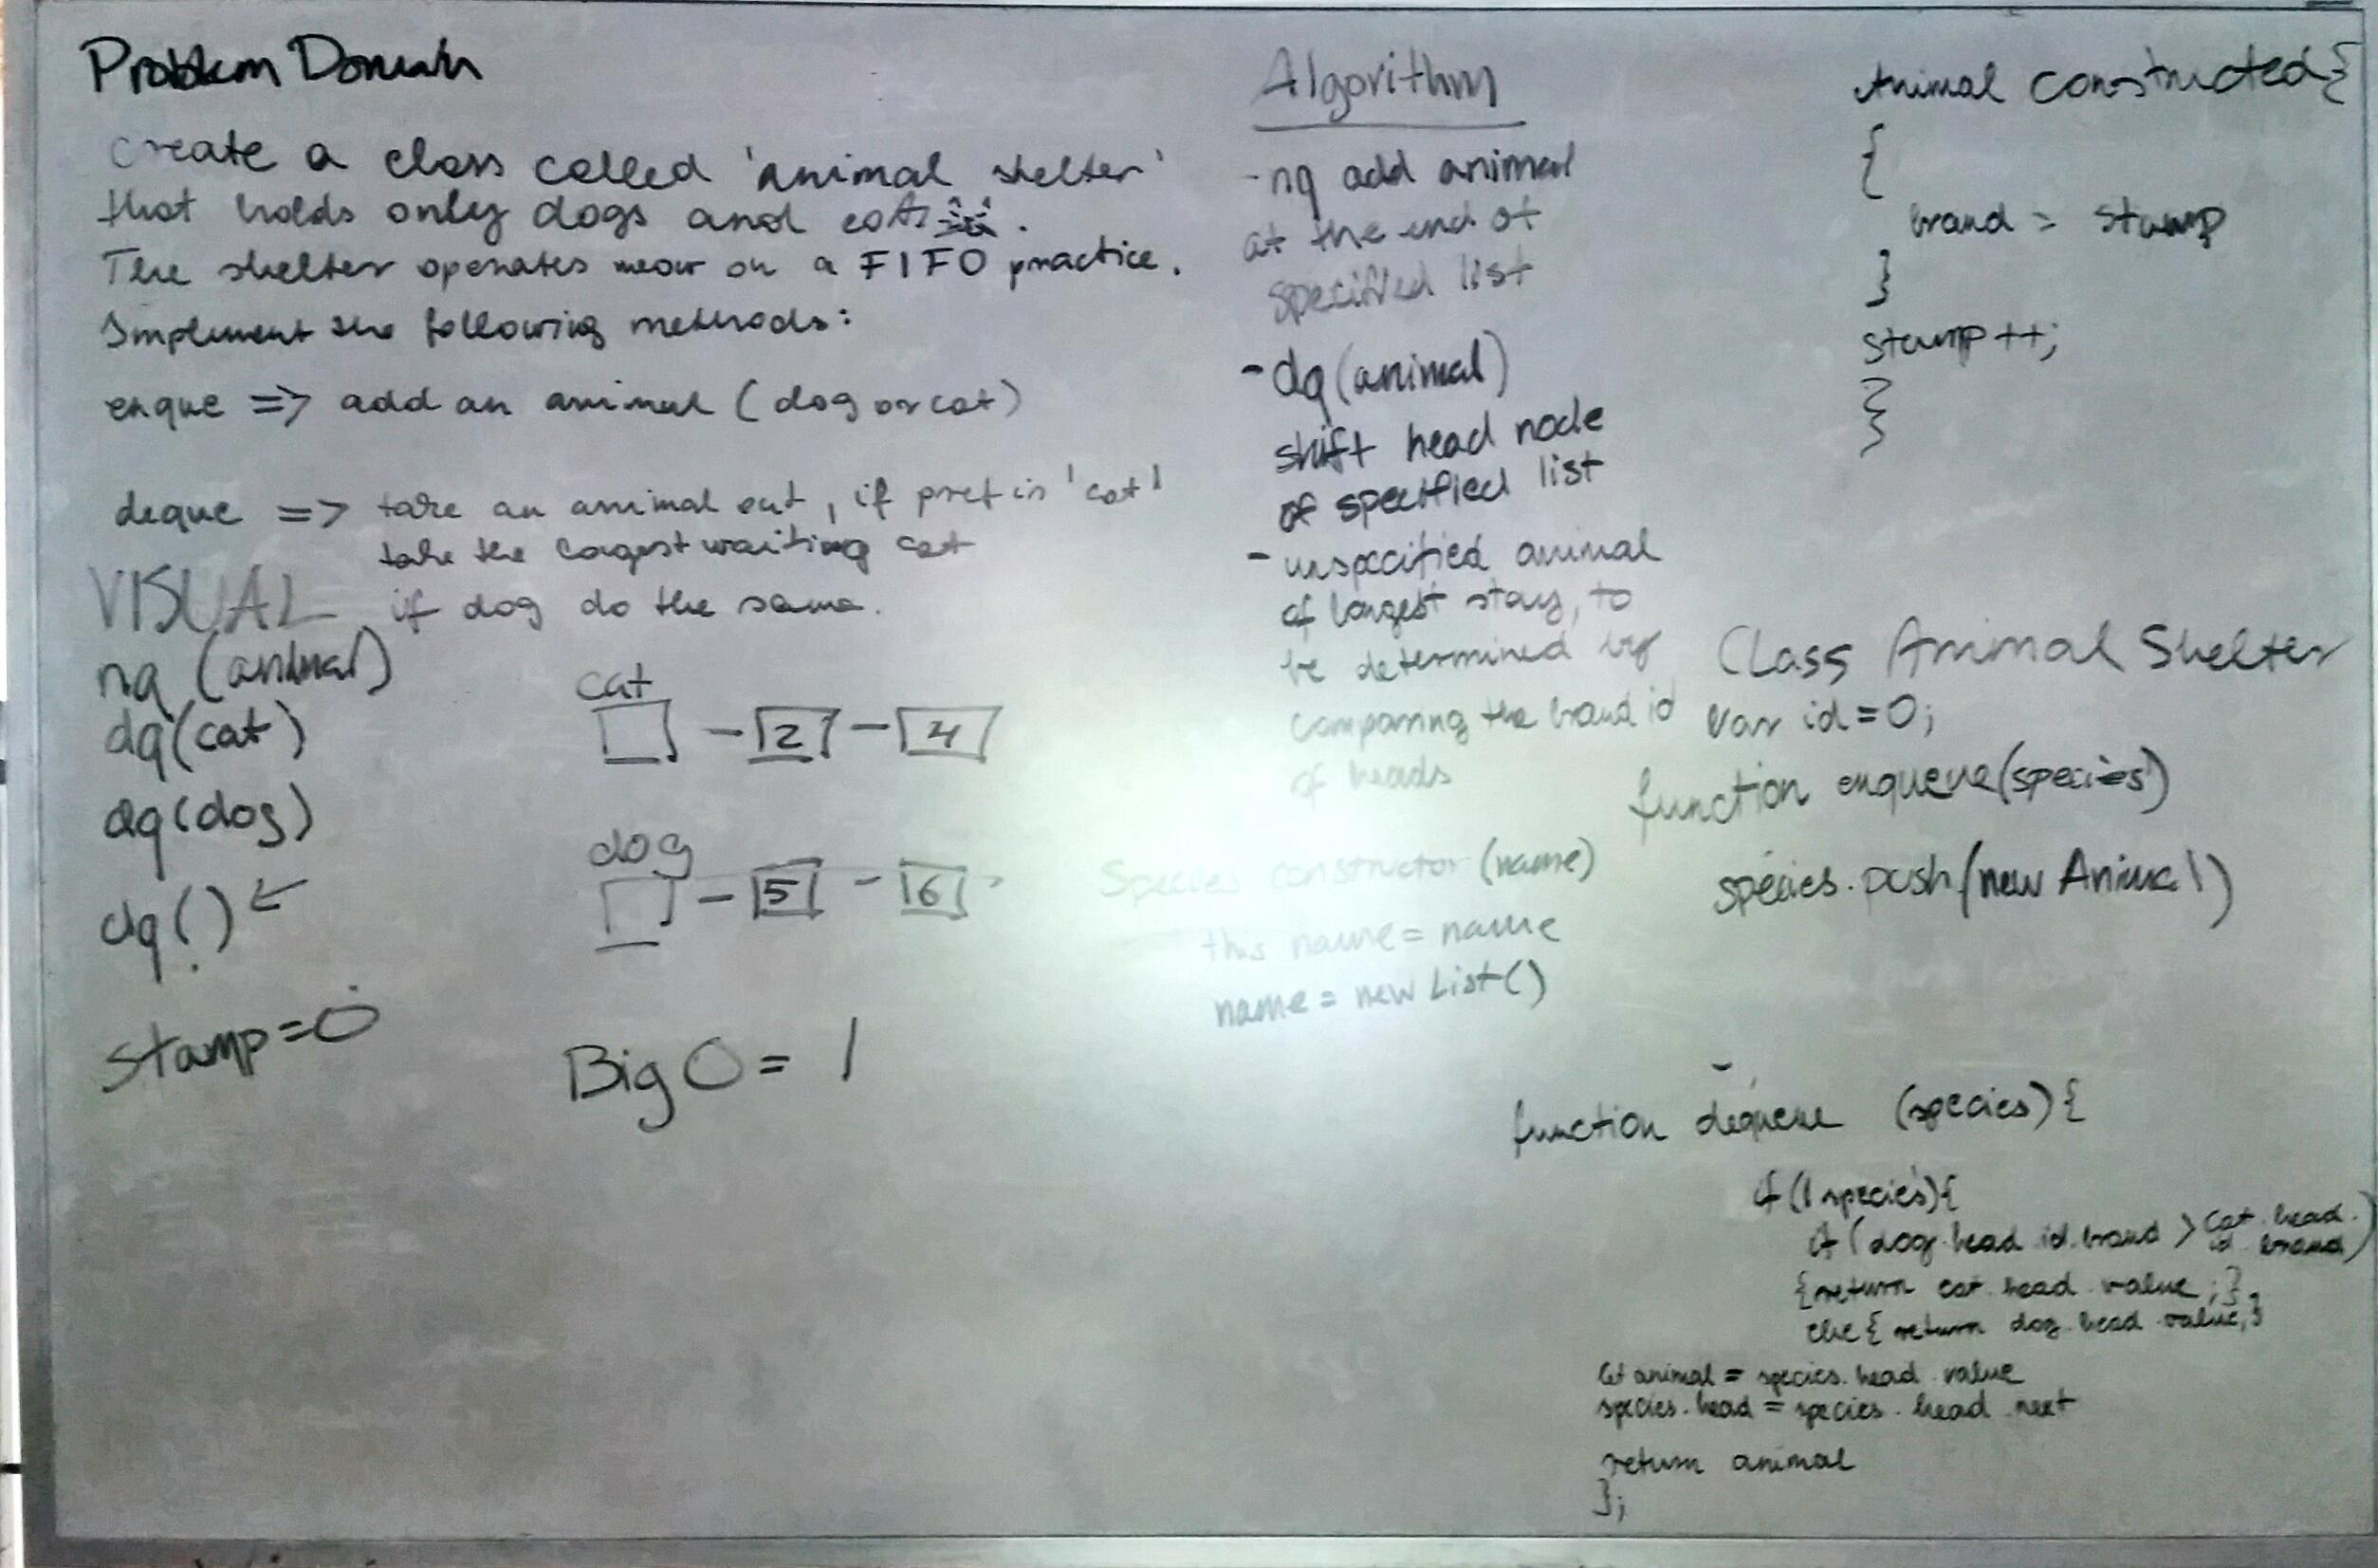 Problem Domain
create a class called 'animal shelter'
that holds only dogs and cats.
The shelter operates meow on a FIFO practice.
Implement the following methods:
enque => add an animal (dog or cat)
deque => take an animal out, if pref is 'cat'
take the longest waiting cat
if dog do the same.
VISUAL
nq (animal)
dq(cat)
dq(dog)
dq() ←
stamp=0
cat
2 - 4
dog
5 - 6
Big O = 1
Algorithm
- nq add animal
at the end of
specified list
- dq(animal)
shift head node
of specified list
- unspecified animal
of longest stay, to
be determined by
comparing the brand id
of heads
Species constructor (name)
this name = name
name = new List()
Animal constructed {
{
brand = stamp
}
stamp++;
}
}
Class Animal Shelter
Var id=0;
function enqueue(species)
species.push(new Animal)
function dequeue (species) {
if (!species){
if (dog.head.id.brand > cat.head.
id.brand)
{return cat.head.value;}
else { return dog.head.value;}
let animal = species.head.value
species.head = species.head.next
return animal
};